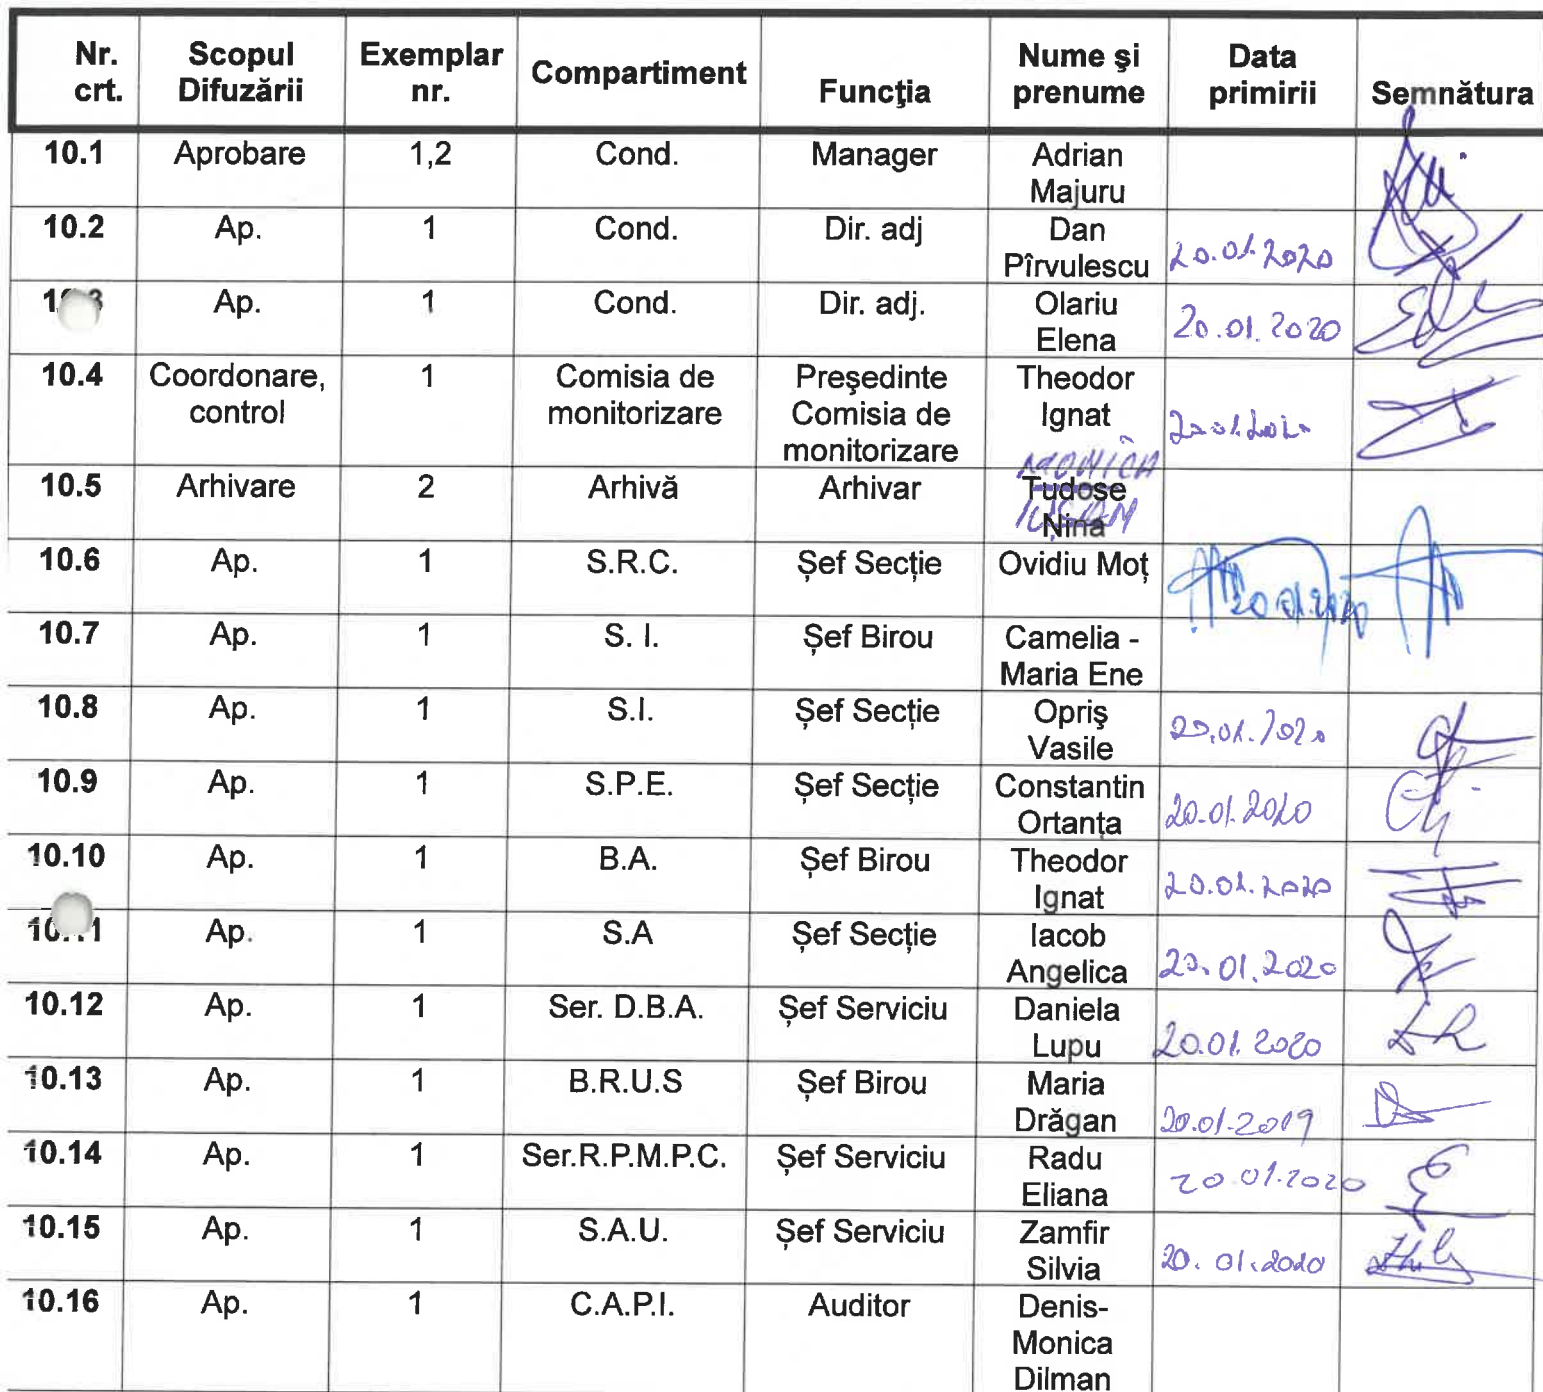 Nr. crt. Scopul Difuzării Exemplar nr. Compartiment Funcţia Nume şi prenume Data primirii Semnătura
10.1 Aprobare 1,2 Cond. Manager Adrian Majuru
10.2 Ap. 1 Cond. Dir. adj Dan Pîrvulescu 20.01.2020
Ap. 1 Cond. Dir. adj. Olariu Elena 20.01.2020
10.4 Coordonare, control 1 Comisia de monitorizare Preşedinte Comisia de monitorizare Theodor Ignat 20.01.2020
10.5 Arhivare 2 Arhivă Arhivar MONICA Tudose Nina
10.6 Ap. 1 S.R.C. Șef Secție Ovidiu Moț 20.01.2020
10.7 Ap. 1 S. I. Șef Birou Camelia - Maria Ene
10.8 Ap. 1 S.I. Șef Secție Opriş Vasile 20.01.2020
10.9 Ap. 1 S.P.E. Șef Secție Constantin Ortanța 20.01.2020
10.10 Ap. 1 B.A. Șef Birou Theodor Ignat 20.01.2020
10.11 Ap. 1 S.A Șef Secție Iacob Angelica 20.01.2020
10.12 Ap. 1 Ser. D.B.A. Șef Serviciu Daniela Lupu 20.01.2020
10.13 Ap. 1 B.R.U.S Șef Birou Maria Drăgan 20.01.2019
10.14 Ap. 1 Ser.R.P.M.P.C. Șef Serviciu Radu Eliana 20.01.2020
10.15 Ap. 1 S.A.U. Șef Serviciu Zamfir Silvia 20.01.2020
10.16 Ap. 1 C.A.P.I. Auditor Denis- Monica Dilman